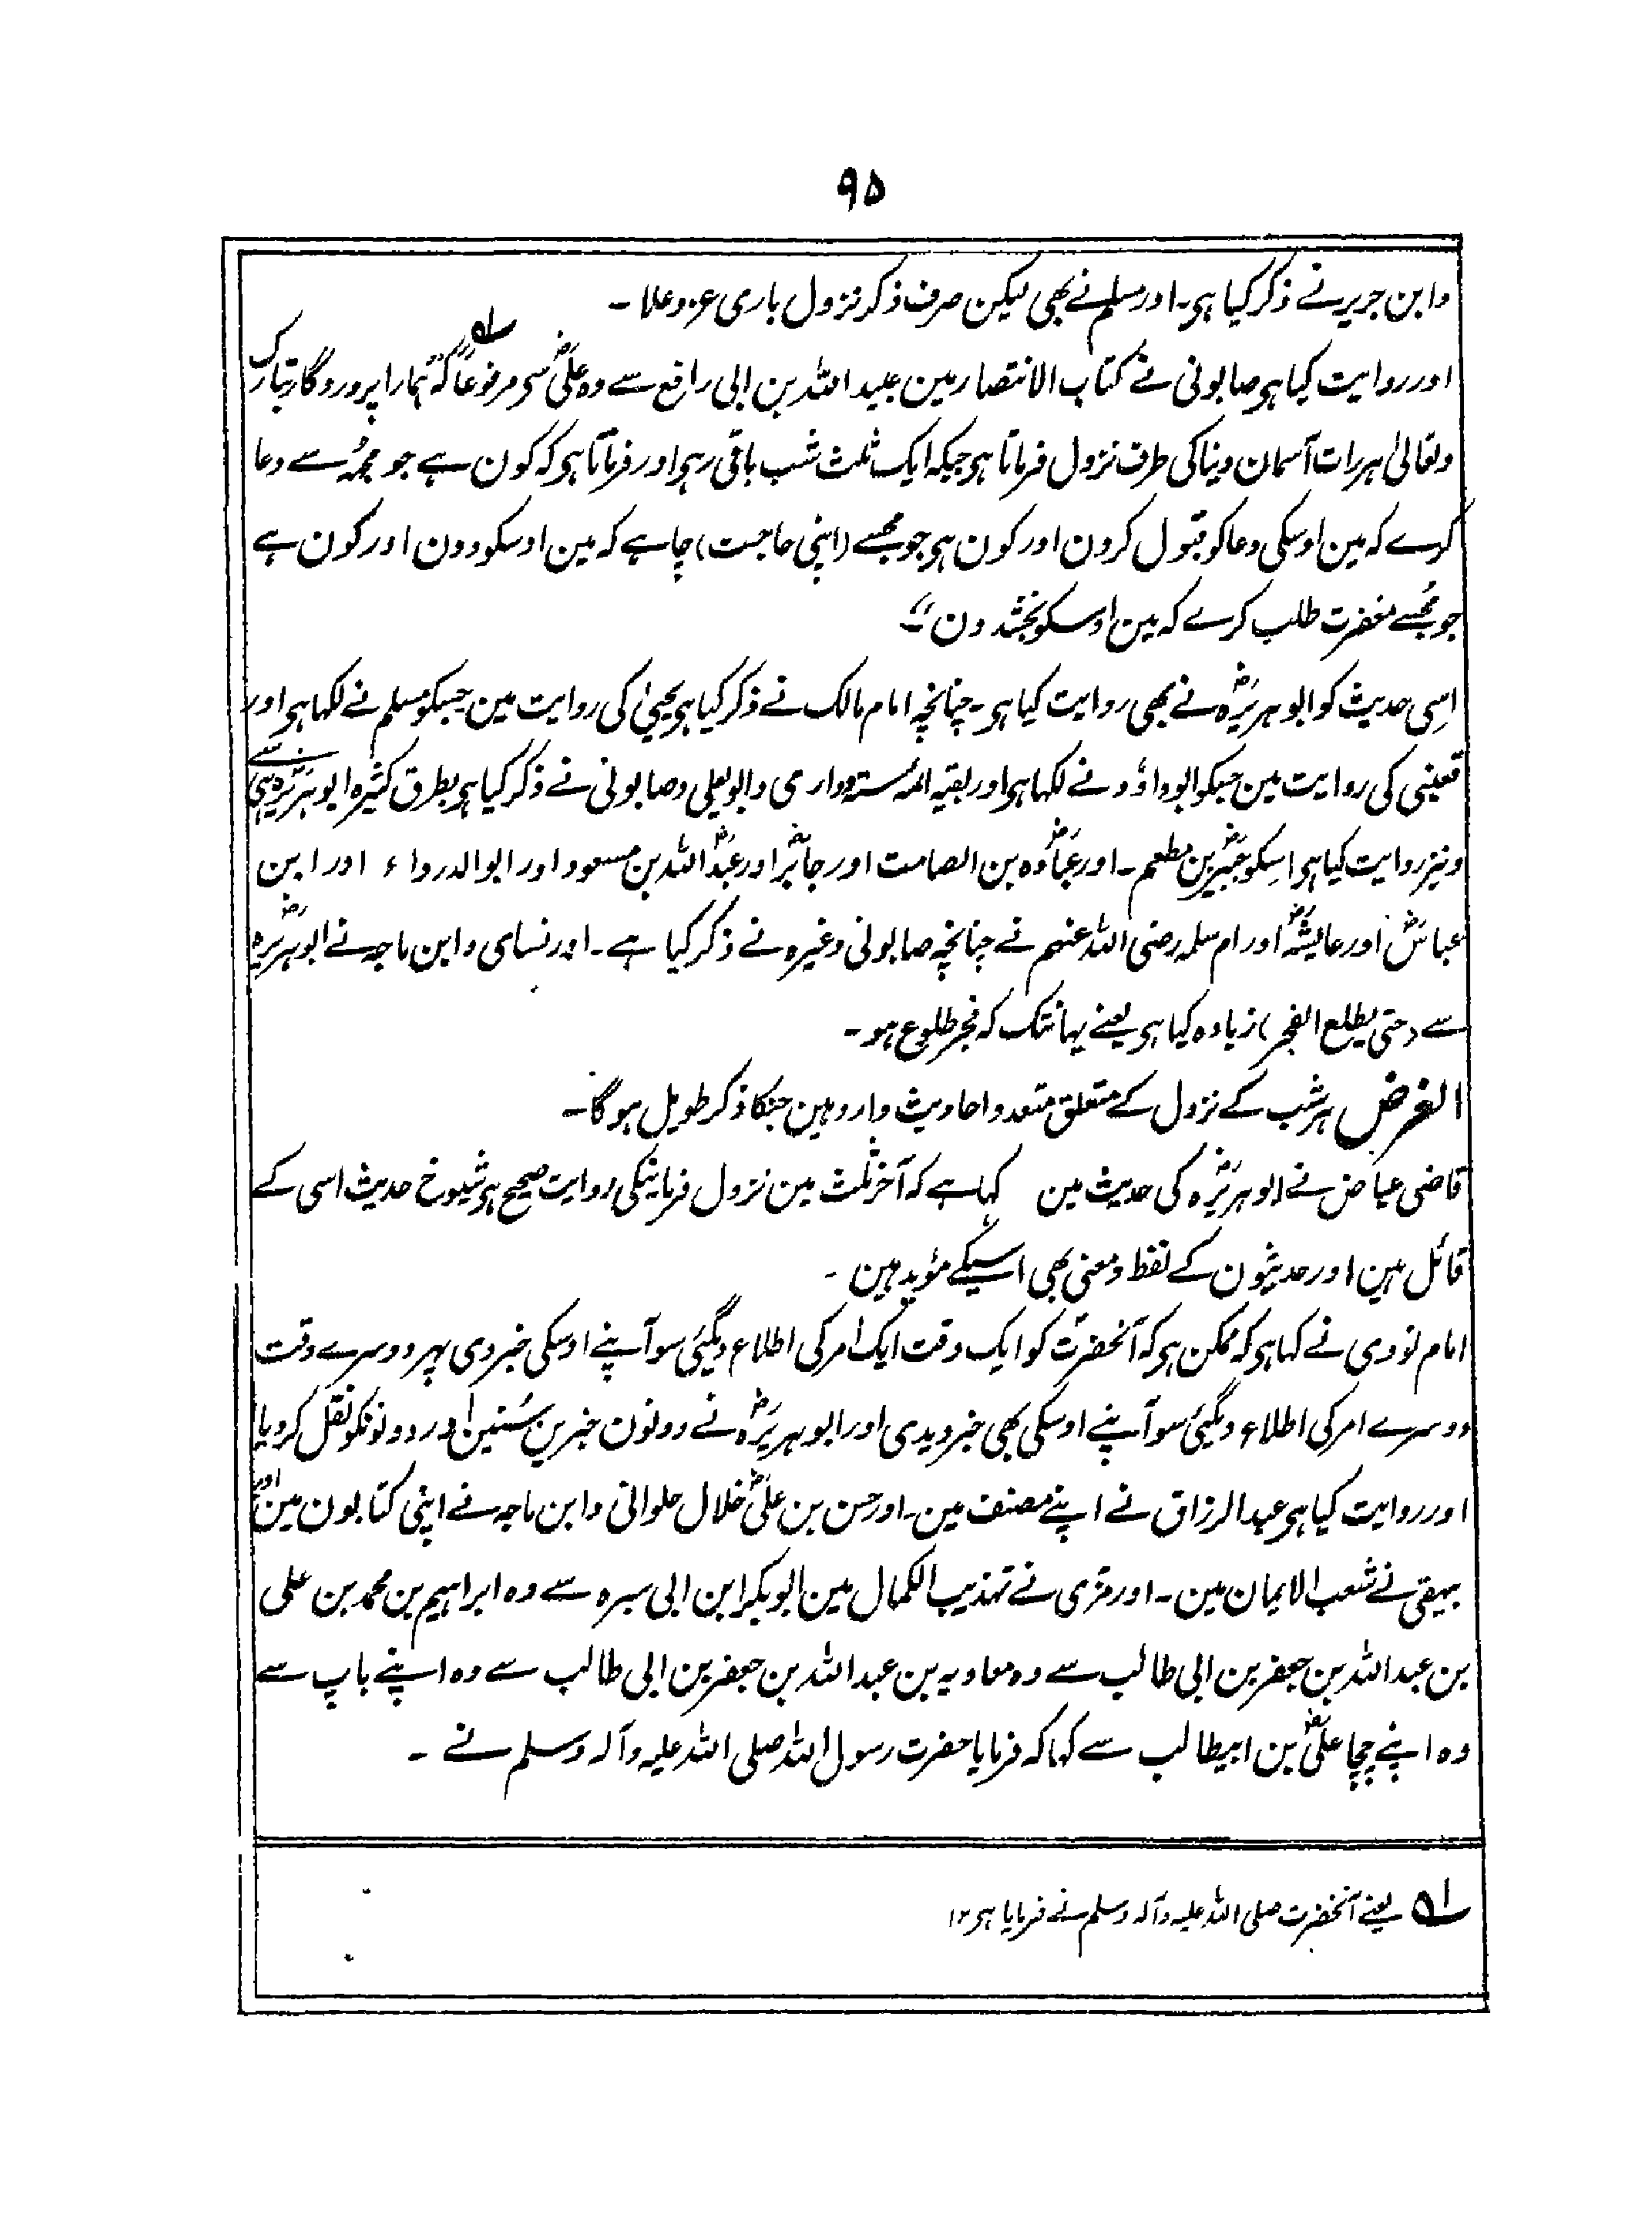 ۹۵
وابن جریر نے ذکر کیا ہی۔ اور مسلم نے بھی لیکن صرف ذکر نزول باری عز وعلا۔
اور روایت کیا ہی صابونی نے کتاب الانتصار مین عبید اللہ بن ابی رافع سے وہ علیؓ سی مرفوعاً ؎۱ کہ ’’ہمارا پروردگار تبارک
وتعالیٰ ہر رات آسمان دنیا کی طرف نزول فرماتا ہی جبکہ ایک ثلث شب باقی رہی اور فرماتا ہی کہ کون ہے جو مجھ سے دعا
کرے کہ مین اوسکی دعا کو قبول کرون اور کون ہی جو مجھسے (اپنی حاجت) چاہے کہ مین اوسکو دون اور کون ہے
جو مجھسے مغفرت طلب کرے کہ مین اوسکو بخشدون‘‘۔
اسی حدیث کو ابو ہریرہؓ نے بھی روایت کیا ہی۔ چنانچہ امام مالک نے ذکر کیا ہی یحییٰ کی روایت مین جسکو مسلم نے لکہا ہی اور
قعنبی کی روایت مین جسکو ابو داؤد نے لکہا ہی اور بقیہ ائمہ ستہ و دارمی و ابو یعلی و صابونی نے ذکر کیا ہی بطرق کثیرہ ابو ہریرہؓ سے
ونیز روایت کیا ہی اسکو جبیرؓ بن مطعم۔ اور عبادہؓ بن الصامت اور جابرؓ اور عبد اللہؓ بن مسعود اور ابو الدرداء اور ابن
عباسؓ اور عایشہؓ اور ام سلمہ رضی اللہ عنہم نے چنانچہ صابونی وغیرہ نے ذکر کیا ہے۔ اور نسای وابن ماجہ نے ابو ہریرہؓ
سے (حتی یطلع الفجر) زیادہ کیا ہی یعنے یہانتک کہ فجر طلوع ہو۔
الغرض ہر شب کے نزول کے متعلق متعدد احادیث وارد ہین جنکا ذکر طویل ہوگا۔
قاضی عیاض نے ابو ہریرہؓ کی حدیث مین کہا ہے کہ آخر ثلث مین نزول فرمانیکی روایت صحیح ہی شیوخ حدیث اسی کے
قائل ہین اور حدیثون کے لفظ ومعنی بھی اسیکے مؤید ہین۔
امام نووی نے کہا ہی کہ ممکن ہی کہ آنحضرتؐ کو ایک وقت ایک امر کی اطلاع دیگئی سو آپنے اوسکی خبر دی پھر دوسرے وقت
دوسرے امر کی اطلاع دیگئی سو آپنے اوسکی بھی خبر دیدی اور ابو ہریرہؓ نے دونون خبرین سُنین اور دونونکو نقل کردیا
اور روایت کیا ہی عبد الرزاق نے اپنے مصنف مین۔ اور حسن بن علیؓ خلال حلوانی وابن ماجہ نے اپنی کتابون مین اور
بیہقی نے شعب الایمان مین۔ اور مزی نے تہذیب الکمال مین ابو بکر ابن ابی سبرہ سے وہ ابراہیم بن محمد بن علی
بن عبد اللہ بن جعفر بن ابی طالب سے وہ معاویہ بن عبد اللہ بن جعفر بن ابی طالب سے وہ اپنے باپ سے
وہ اپنے چچا علیؓ بن ابیطالب سے کہا کہ فرمایا حضرت رسول اللہ صلی اللہ علیہ وآلہ وسلم نے۔
؎۱ یعنے آنحضرت صلی اللہ علیہ وآلہ وسلم نے فرمایا ہی ۱۲